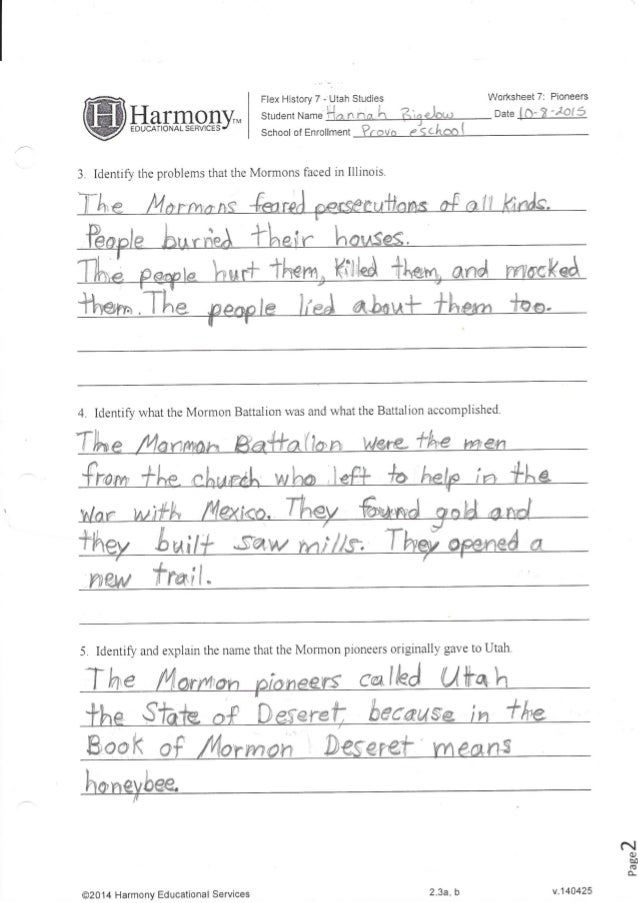 Harmony™
EDUCATIONAL SERVICES
Flex History 7 - Utah Studies
Worksheet 7: Pioneers
Student Name Hannah Bigelow
Date 10-8-2015
School of Enrollment Provo eschool
3. Identify the problems that the Mormons faced in Illinois.
The Mormons feared persecutions of all kinds.
People burned their houses.
The people hurt them, killed them, and mocked
them. The people lied about them too.
4. Identify what the Mormon Battalion was and what the Battalion accomplished.
The Mormon Battalion were the men
from the church who left to help in the
war with Mexico. They found gold and
they built saw mills. They opened a
new trail.
5. Identify and explain the name that the Mormon pioneers originally gave to Utah.
The Mormon pioneers called Utah
the State of Deseret, because in the
Book of Mormon Deseret means
honeybee.
Page 2
©2014 Harmony Educational Services
2.3a, b
v.140425